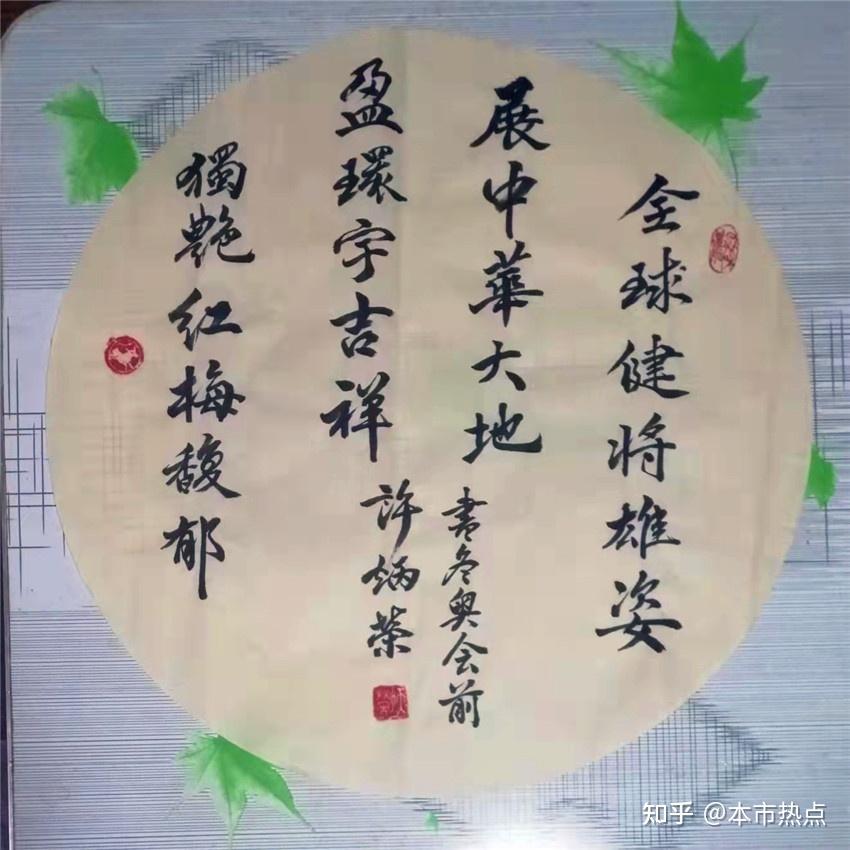 全球健将雄姿
展中華大地
盈環宇吉祥
獨艷红梅馥郁
書冬奥会前
許炳榮
知乎 @本市热点